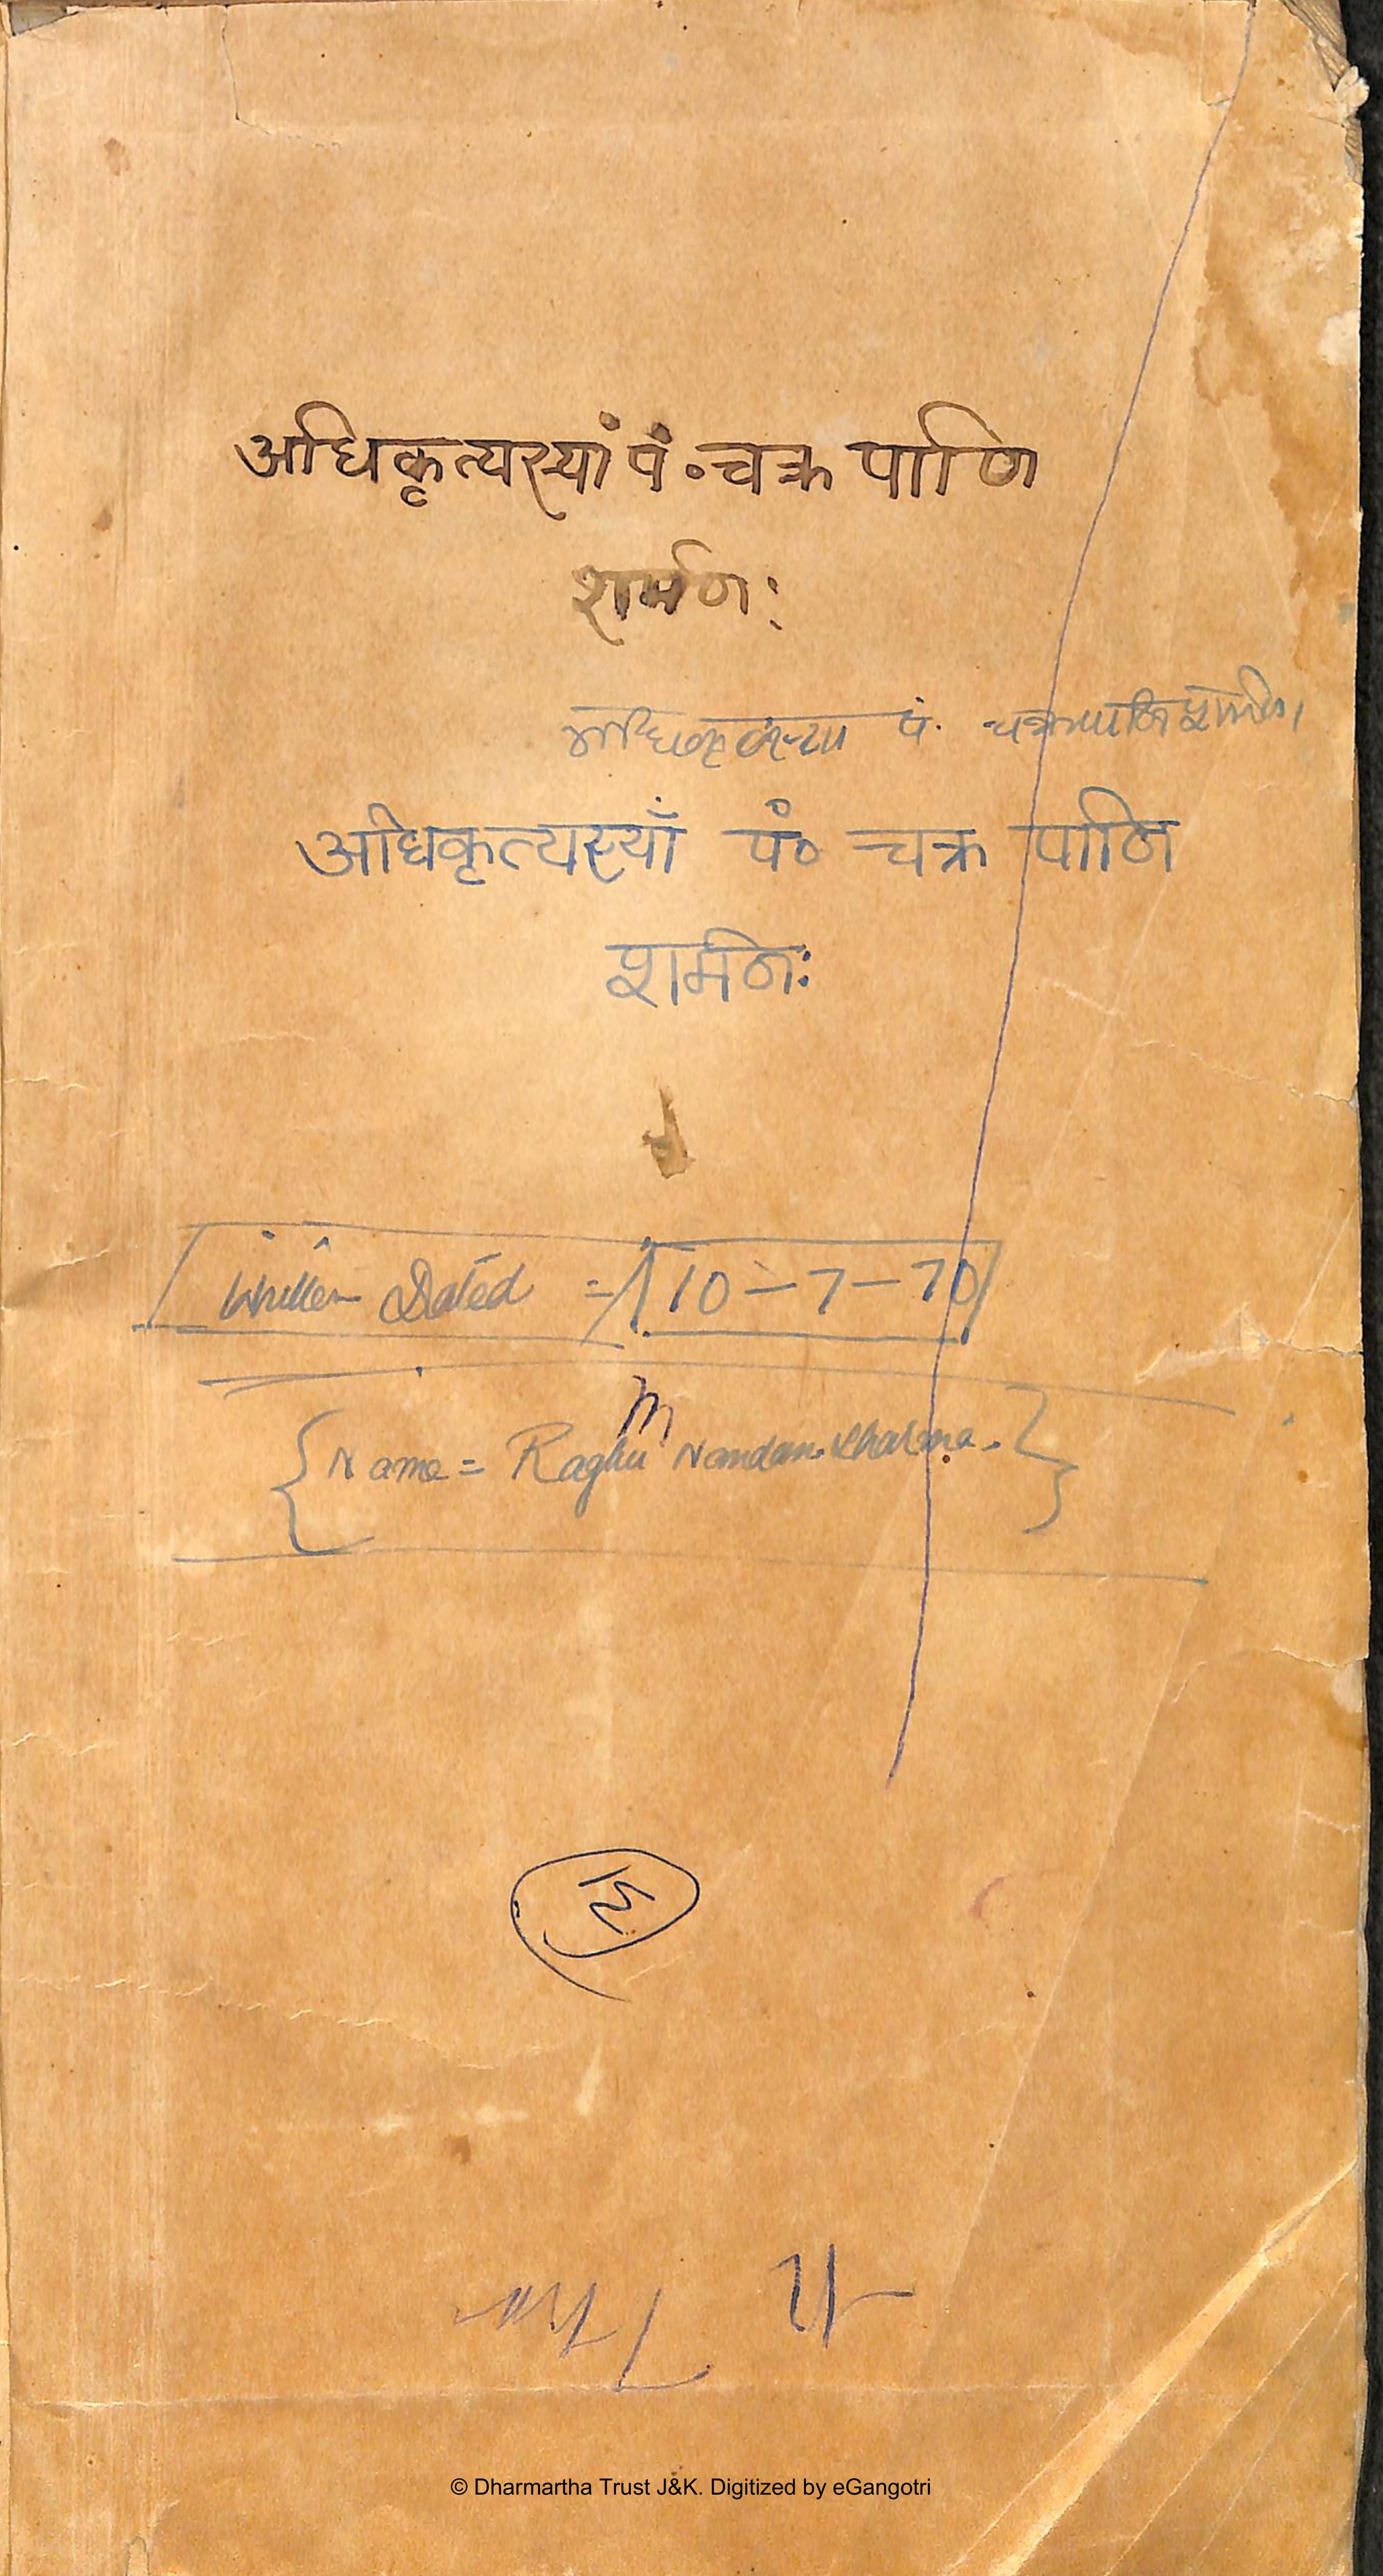 अधिकृत्यस्यां पं॰ चक्र पाणि
शर्मणः
पं.
अधिकृत्यस्याँ पं॰ चक्र पाणि
शर्मणः
Written Dated = 10-7-70
Name = Raghu Nandan Sharma.
© Dharmartha Trust J&K. Digitized by eGangotri